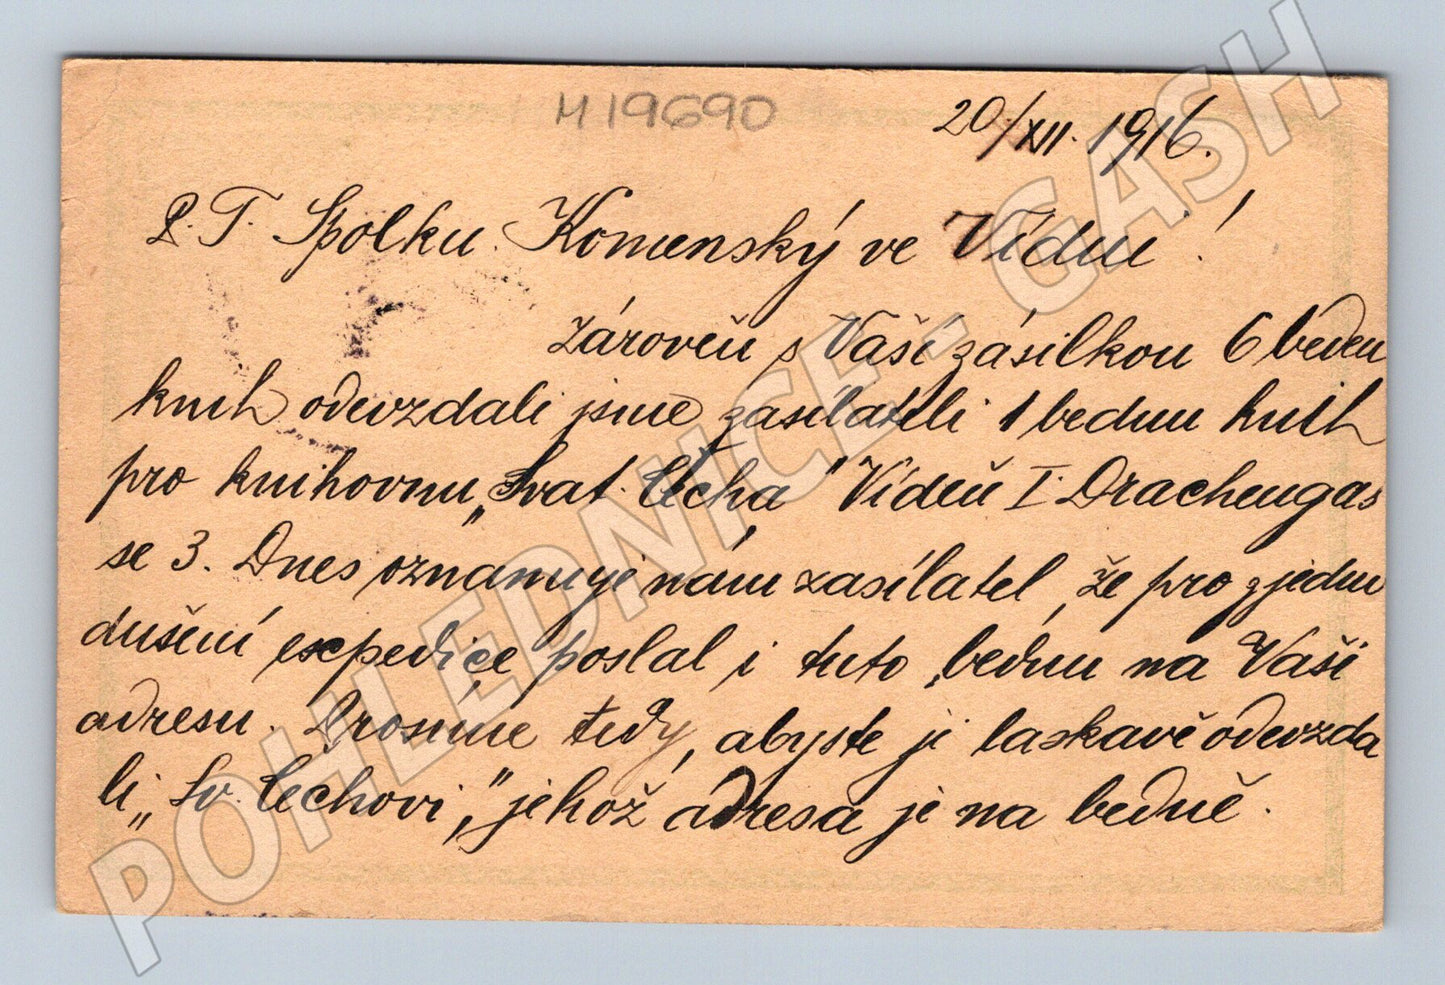 M 19690
20/XII. 1916.
P. T. Spolku Komenský ve Vídni!
Zároveň s Vaší zásilkou 6 beden
knih odevzdali jsme zasílateli 1 bednu knih
pro knihovnu „Svat. Čecha" Vídeň I. Drachengas
se 3. Dnes oznamuje nám zasílatel, že pro zjedno
dušení expedice poslal i tuto bednu na Vaši
adresu. Prosíme tedy, abyste ji laskavě odevzda
li „Sv. Čechovi", jehož adresa je na bedně.
POHLEDNICE-GASH